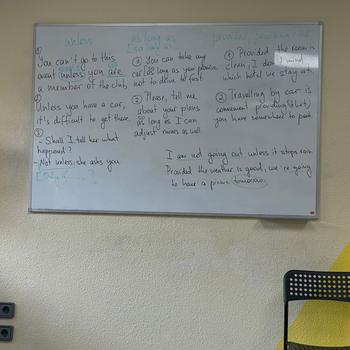 unless
①
You can't go to this
event unless you are
a member of the club.
②
Unless you have a car,
it's difficult to get there.
③
- Shall I tell her what
happened?
- Not unless she asks you
as long as
① You can take my
car as long as you promise
not to drive fast.
② Please, tell me
about your plans
as long as I can
adjust mines as well.
provided
① Provided the room is
clean, I don't mind
which hotel we stay at.
② Travelling by car is
convenient providing (that)
you have somewhere to park.
I am not going out unless it stops rain.
Provided the weather is good, we're going
to have a picnic tomorrow.